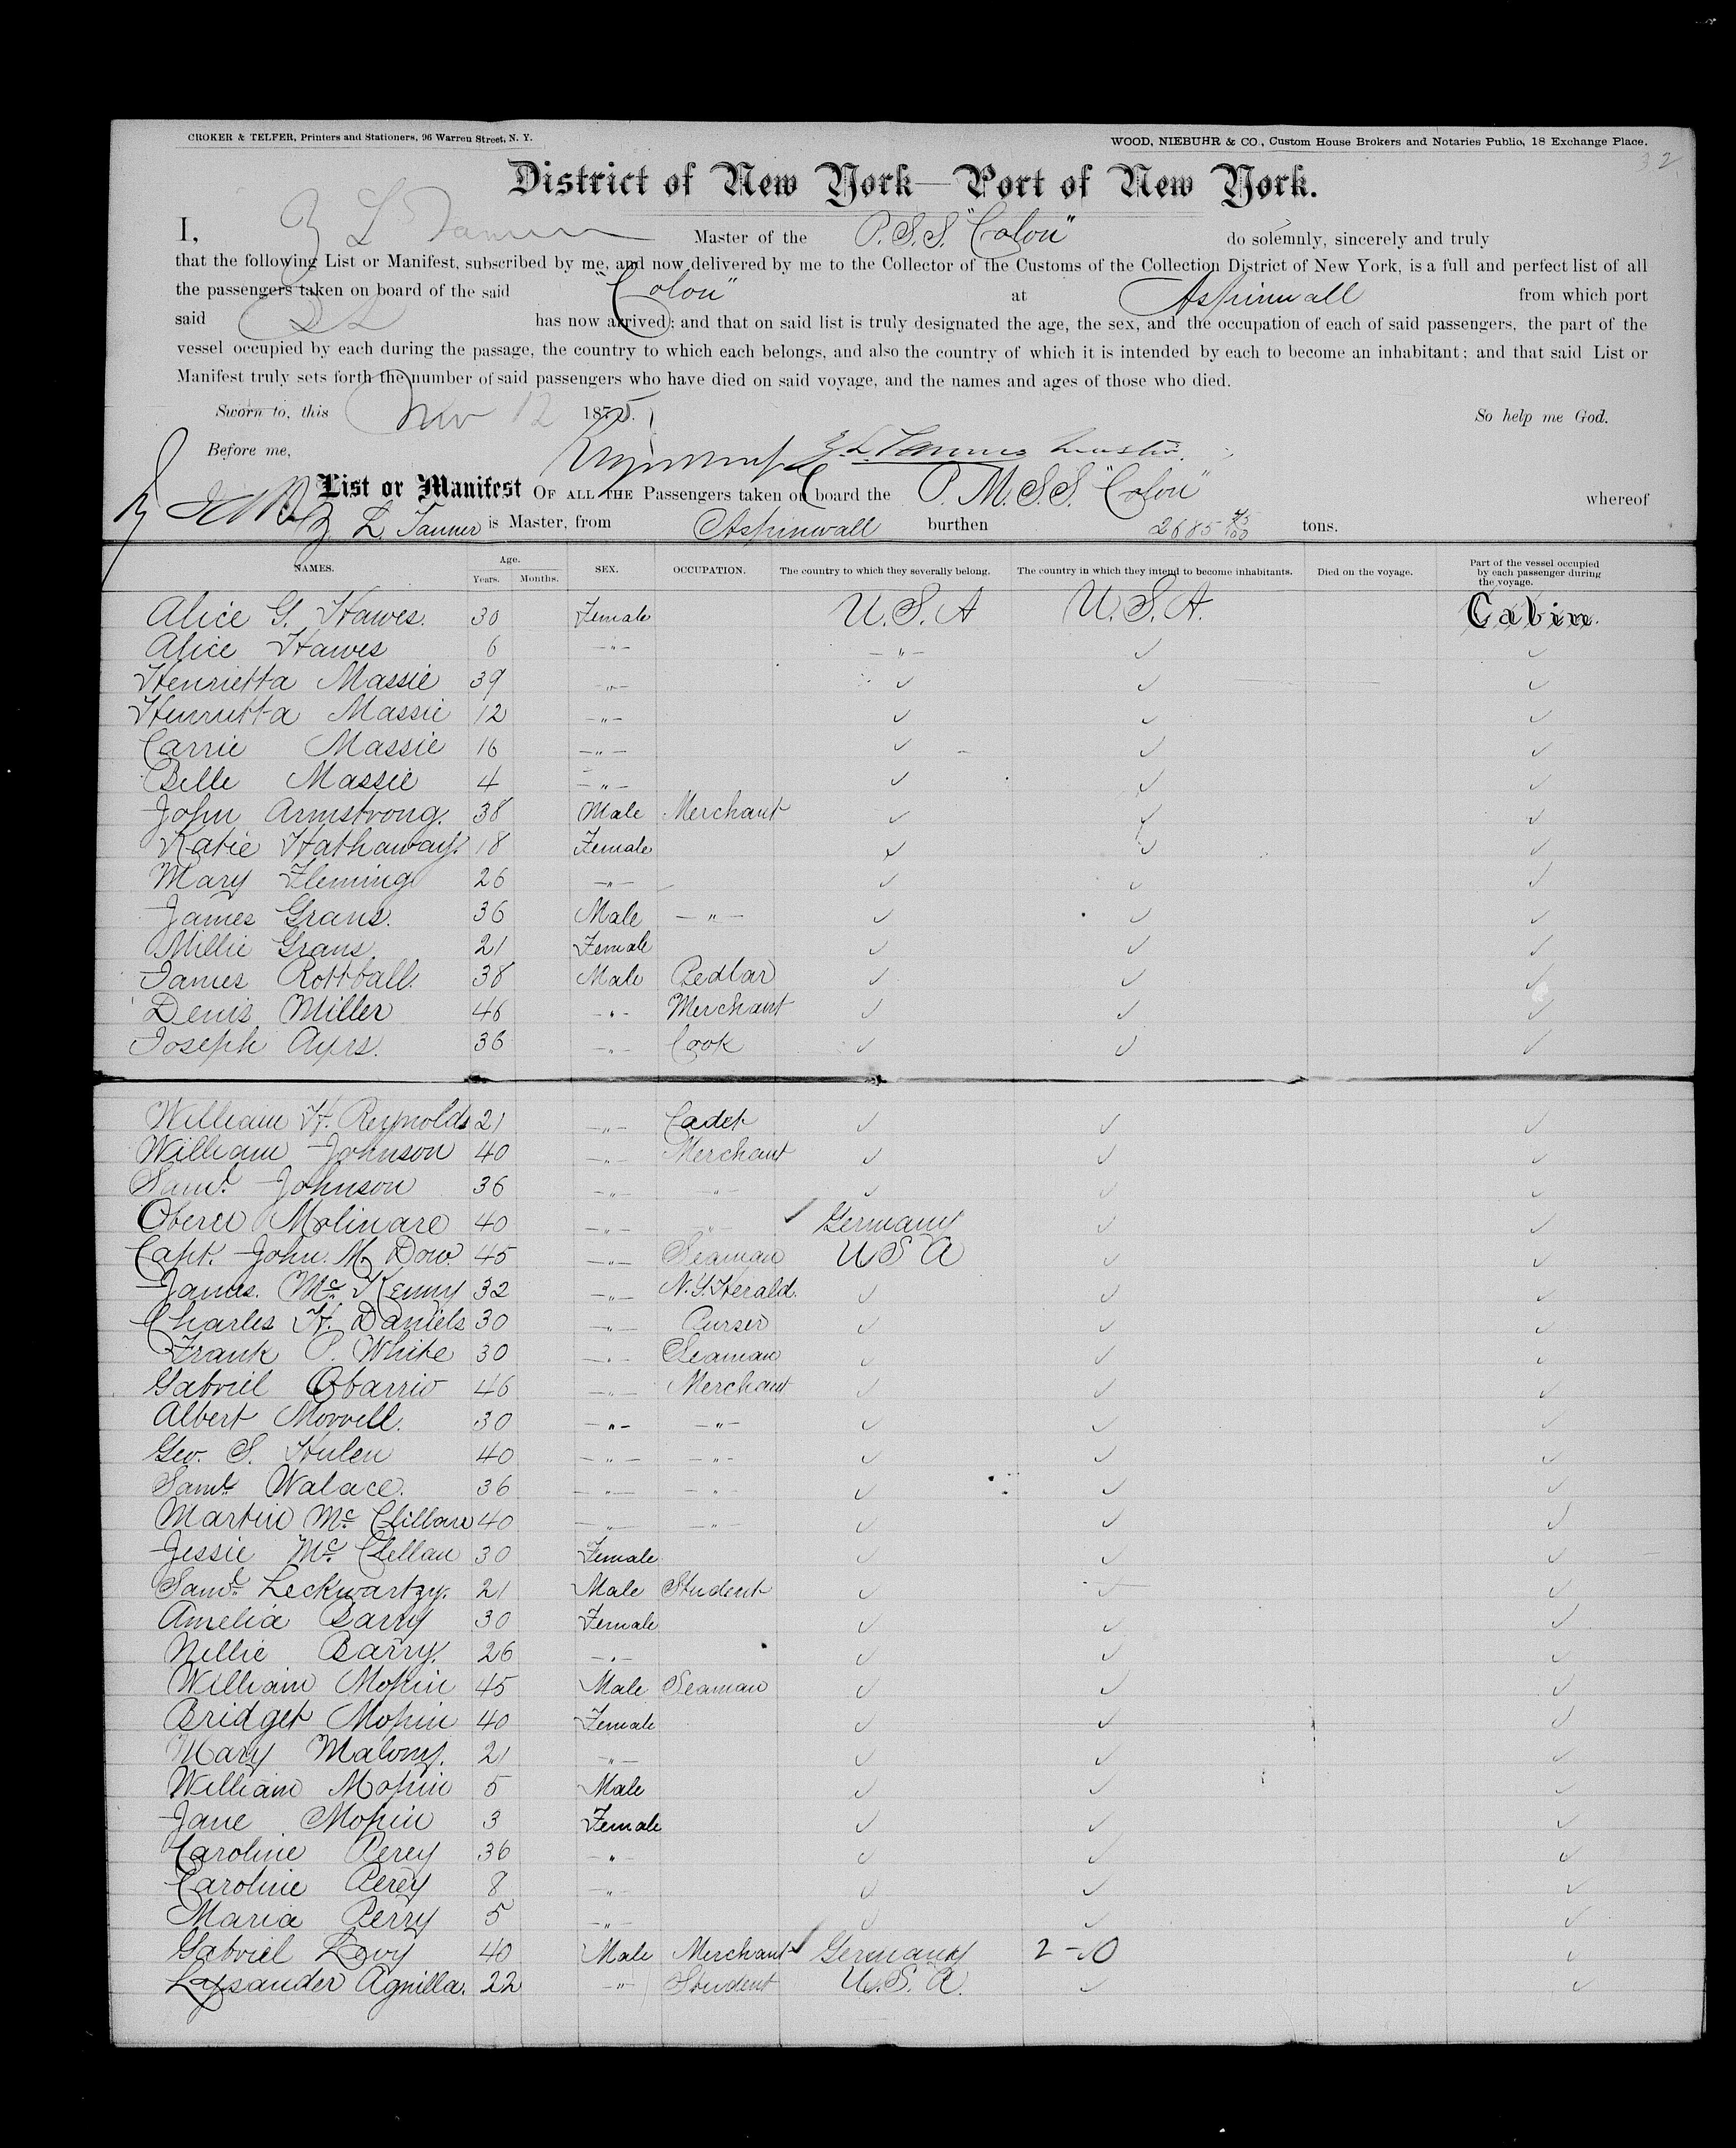 CROKER & TELFER, Printers and Stationers, 96 Warren Street, N. Y. WOOD, NIEBUHR & CO., Custom House Brokers and Notaries Public, 18 Exchange Place.
32
District of New York—Port of New York.
I, Z L Tanner Master of the P.S.S. "Colon" do solemnly, sincerely and truly
that the following List or Manifest, subscribed by me, and now delivered by me to the Collector of the Customs of the Collection District of New York, is a full and perfect list of all
the passengers taken on board of the said "Colon" at Aspinwall from which port
said has now arrived; and that on said list is truly designated the age, the sex, and the occupation of each of said passengers, the part of the
vessel occupied by each during the passage, the country to which each belongs, and also the country of which it is intended by each to become an inhabitant; and that said List or
Manifest truly sets forth the number of said passengers who have died on said voyage, and the names and ages of those who died.
Sworn to, this Nov 12 1875. So help me God.
Before me, Z. L. Tanner
List or Manifest OF ALL THE Passengers taken on board the P.M.S.S. "Colon" whereof
Z L. Tanner is Master, from Aspinwall burthen 2685 tons.
NAMES. Age. Years. Months. SEX. OCCUPATION. The country to which they severally belong. The country in which they intend to become inhabitants. Died on the voyage. Part of the vessel occupied by each passenger during the voyage.
Alice G. Hawes. 30 Female U.S.A U.S.A. Cabin.
Alice Hawes 6 -"- -"- ✓ ✓
Henrietta Massie 39 -"- ✓ ✓ ✓
Henrietta Massie 12 -"- ✓ ✓ ✓
Carrie Massie 16 -"- ✓ ✓ ✓
Belle Massie 4 -"- ✓ ✓ ✓
John Armstrong. 38 Male Merchant ✓ ✓ ✓
Katie Hathaway. 18 Female ✓ ✓ ✓
Mary Fleming 26 -"- ✓ ✓ ✓
James Grans. 36 Male -"- ✓ ✓ ✓
Millie Grans. 21 Female ✓ ✓ ✓
James Rottball. 38 Male Pedlar ✓ ✓ ✓
Denis Miller 46 -"- Merchant ✓ ✓ ✓
Joseph Ayrs. 36 -"- Cook ✓ ✓ ✓
William H. Reynolds 21 -"- Cadet ✓ ✓ ✓
William Johnson 40 -"- Merchant ✓ ✓ ✓
Saml. Johnson 36 -"- -"- ✓ ✓ ✓
Molinare 40 -"- -"- ✓ Germany ✓ ✓
Capt. John. M. Dow. 45 -"- Seaman U S A ✓ ✓
James. Mc. Kenny 32 -"- N.Y. Herald. ✓ ✓ ✓
Charles H. Daniels 30 -"- Purser ✓ ✓ ✓
Frank P. White 30 -"- Seaman ✓ ✓ ✓
Gabriel Obarrio 46 -"- Merchant ✓ ✓ ✓
Albert Morrell. 30 -"- -"- ✓ ✓ ✓
Geo. S. Hulen 40 -"- -"- ✓ ✓ ✓
Saml. Walace. 36 -"- -"- ✓ ✓ ✓
Martin Mc. Clellan 40 -"- -"- ✓ ✓ ✓
Jessie Mc. Clellan 30 Female ✓ ✓ ✓
Saml. Leckwartzy. 21 Male Student ✓ ✓ ✓
Amelia Barry 30 Female ✓ ✓ ✓
Nellie Barry. 26 -"- ✓ ✓ ✓
William Mopin 45 Male Seaman ✓ ✓ ✓
Bridget Mopin 40 Female ✓ ✓ ✓
Mary Malony. 21 -"- ✓ ✓ ✓
William Mopin 5 Male ✓ ✓ ✓
Jane Mopin 3 Female ✓ ✓ ✓
Caroline Perey 36 -"- ✓ ✓ ✓
Caroline Perey 8 -"- ✓ ✓ ✓
Maria Perry 5 -"- ✓ ✓ ✓
Gabriel Levy 40 Male Merchant ✓ Germany 2-10 ✓
Lysander Agnilla. 22 -"- Student U.S.A. ✓ ✓